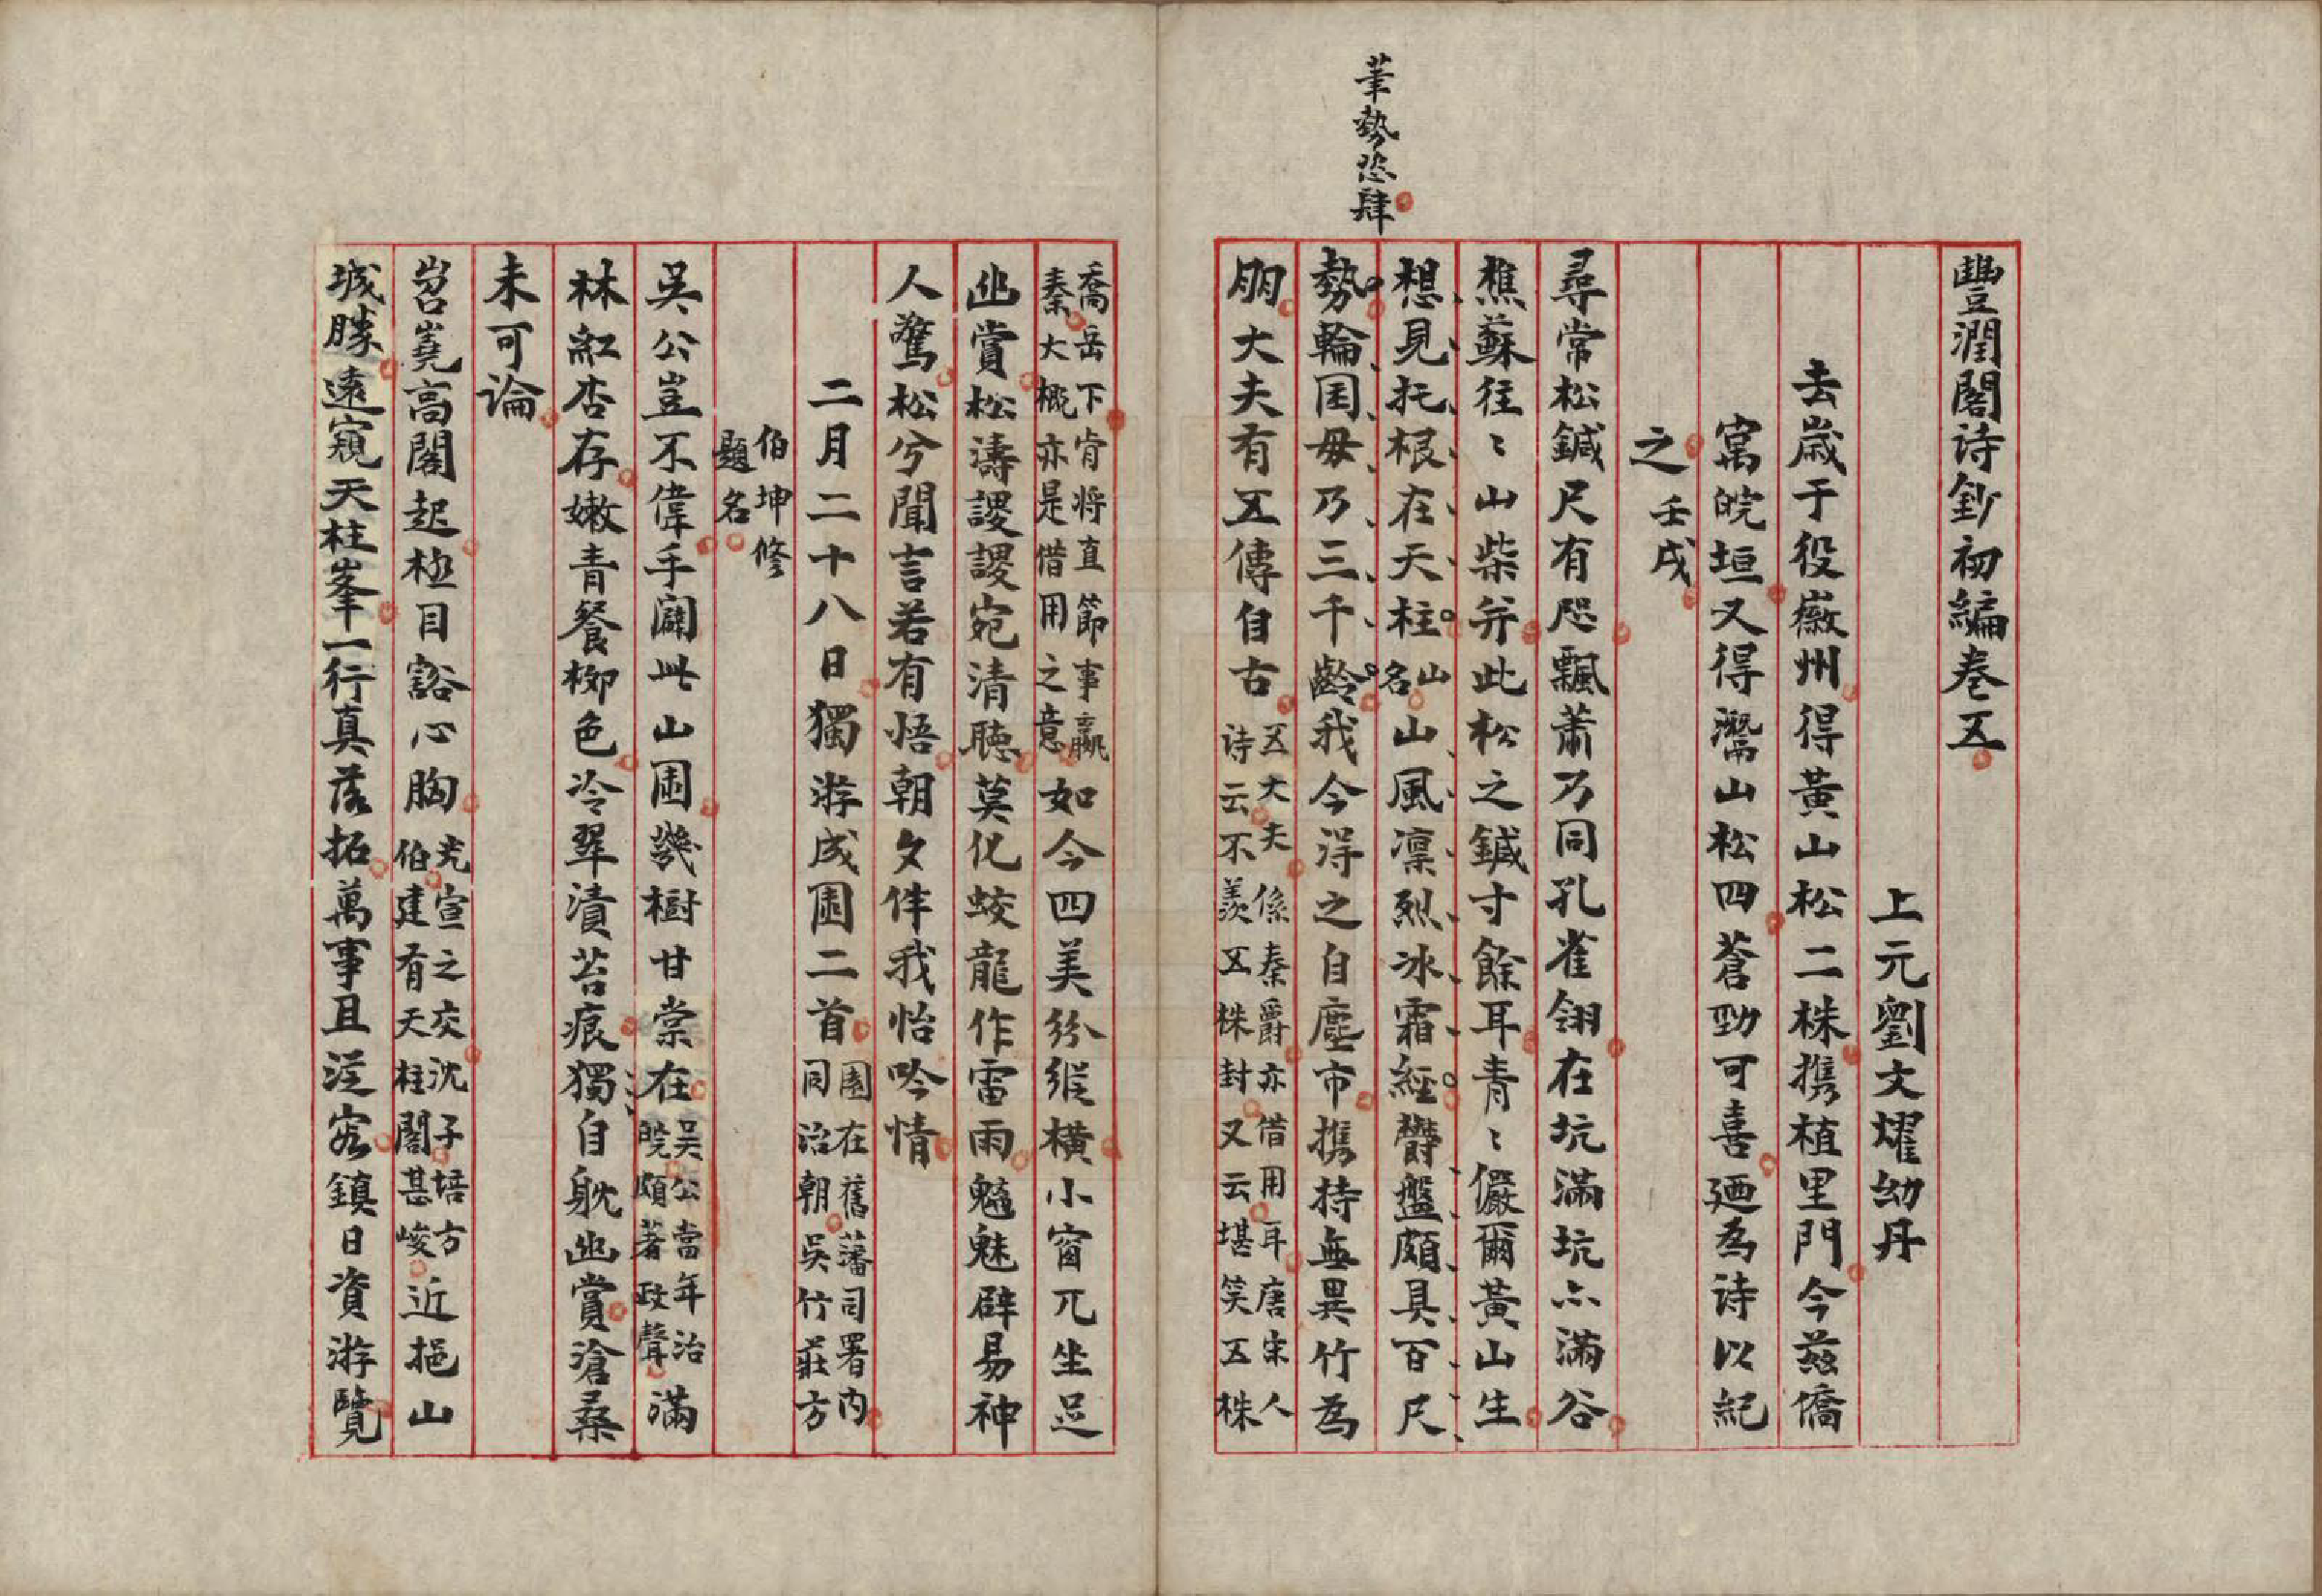 筆勢恣肆
豐潤閣诗鈔初編卷五
上元劉文燿幼丹
去歲于役徽州得黃山松二株携植里門今茲僑
寓皖垣又得灊山松四蒼勁可喜廼為诗以紀
之 壬戌
尋常松鍼尺有咫飄蕭乃同孔雀翎在坑滿坑亦滿谷
樵蘇往〻山柴并此松之鍼寸餘耳青〻儼爾黃山生
想見托根在天柱 山名 山風凛烈冰霜經欝盤頗具百尺
勢輪囷毋乃三千齡我今得之自塵市携持無異竹為
朋大夫有五傳自古 五大夫係秦爵亦借用耳唐宋人
诗云不羡五株封又云堪笑五株
喬岳下肯将直節事嬴
秦大概亦是借用之意 如今四美紛縱橫小窗兀坐足
幽賞松濤謖謖宛清聽莫化蛟龍作雷雨魑魅辟易神
人驚松兮聞言若有悟朝夕伴我怡吟情
二月二十八日獨游成園二首 園在舊藩司署内
同治朝吳竹莊方
伯坤修
題名
吳公豈不偉手闢此山園幾樹甘棠在 吳公當年治
皖頗著政聲 滿
林紅杏存嫩青餐栁色冷翠漬苔痕獨自躭幽賞滄桑
未可論
岧嶤高閣起極目豁心胸 光宣之交沈子培方
伯建有天柱閣甚峻 近挹山
城勝遠窺天柱峯一行真落拓萬事且從容鎮日資游覽